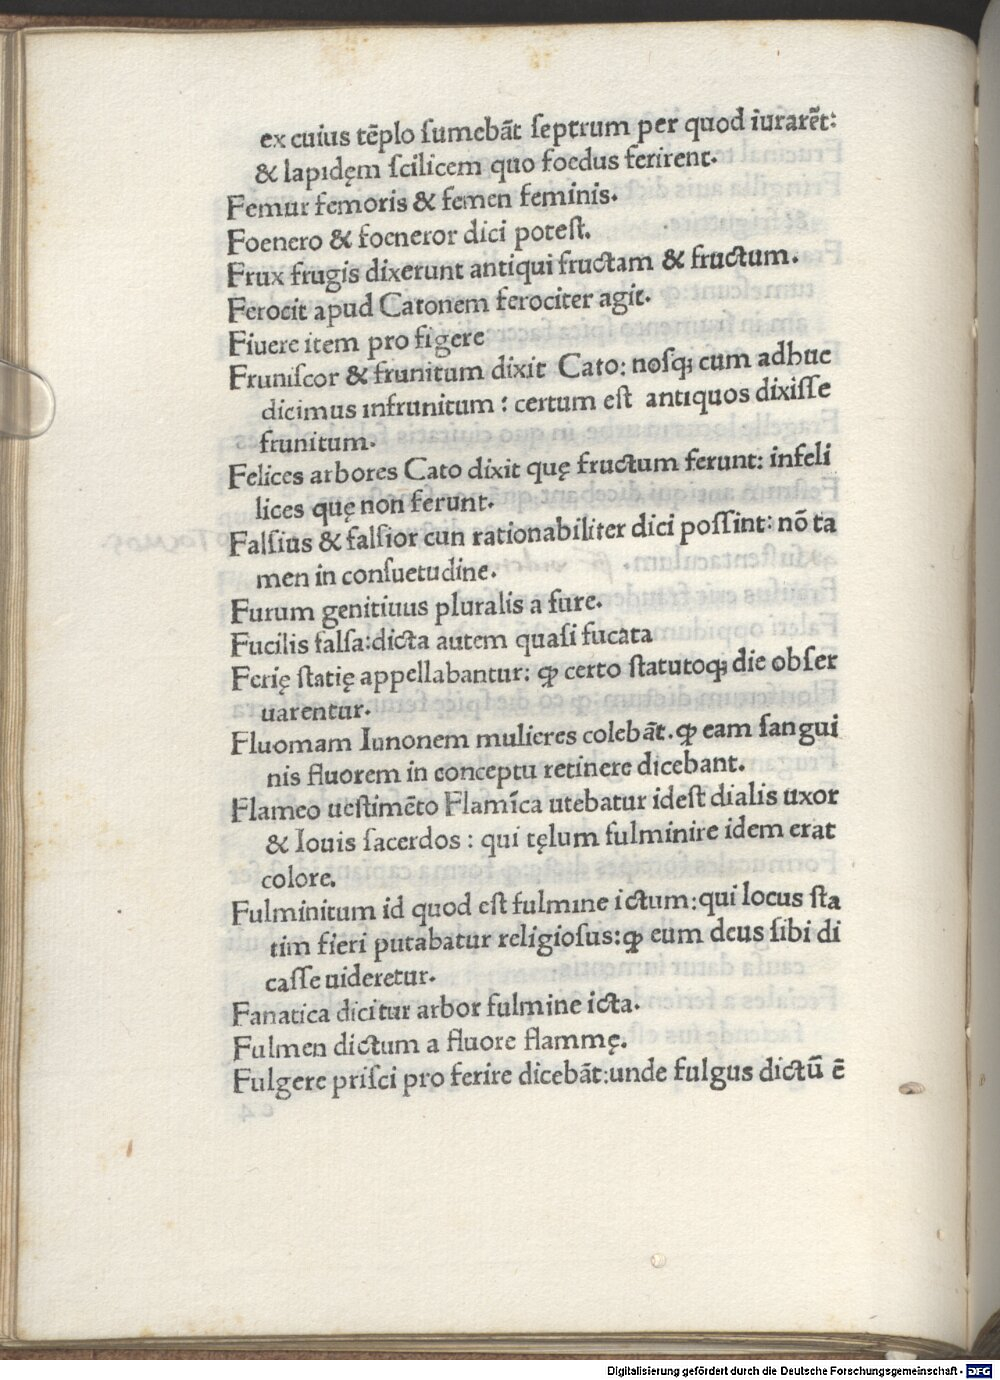 ex cuius tēplo ſumebāt ſeptrum per quod iurarēt:
& lapidęm ſcilicem quo foedus ferirent.
Femur femoris & femen feminis.
Foenero & foeneror dici poteſt.
Frux frugis dixerunt antiqui fructam & fructum.
Ferocit apud Catonem ferociter agit.
Fiuere item pro figere
Fruniſcor & frunitum dixit Cato: noſꝗ cum adhuc
dicimus infrunitum: certum eſt antiquos dixiſſe
frunitum.
Felices arbores Cato dixit quę fructum ferunt: infeli
lices quę non ferunt.
Falſius & falſior cun rationabiliter dici poſſint: nō ta
men in conſuetudine.
Furum genitiuus pluralis a fure.
Fucilis falſa: dicta autem quaſi fucata
Ferię ſtatię appellabantur: ꝙ certo ſtatutoꝗ die obſer
uarentur.
Fluomam Iunonem mulieres colebāt. ꝙ eam ſangui
nis fluorem in conceptu retinere dicebant.
Flameo ueſtimēto Flamīca utebatur ideſt dialis uxor
& Iouis ſacerdos: qui tęlum fulminire idem erat
colore.
Fulminitum id quod eſt fulmine ictum: qui locus ſta
tim fieri putabatur religioſus: ꝙ eum deus ſibi di
caſſe uideretur.
Fanatica dicitur arbor fulmine icta.
Fulmen dictum a fluore flammę.
Fulgere priſci pro ferire dicebāt: unde fulgus dictū ē
Digitalisierung gefördert durch die Deutsche Forschungsgemeinschaft - DFG